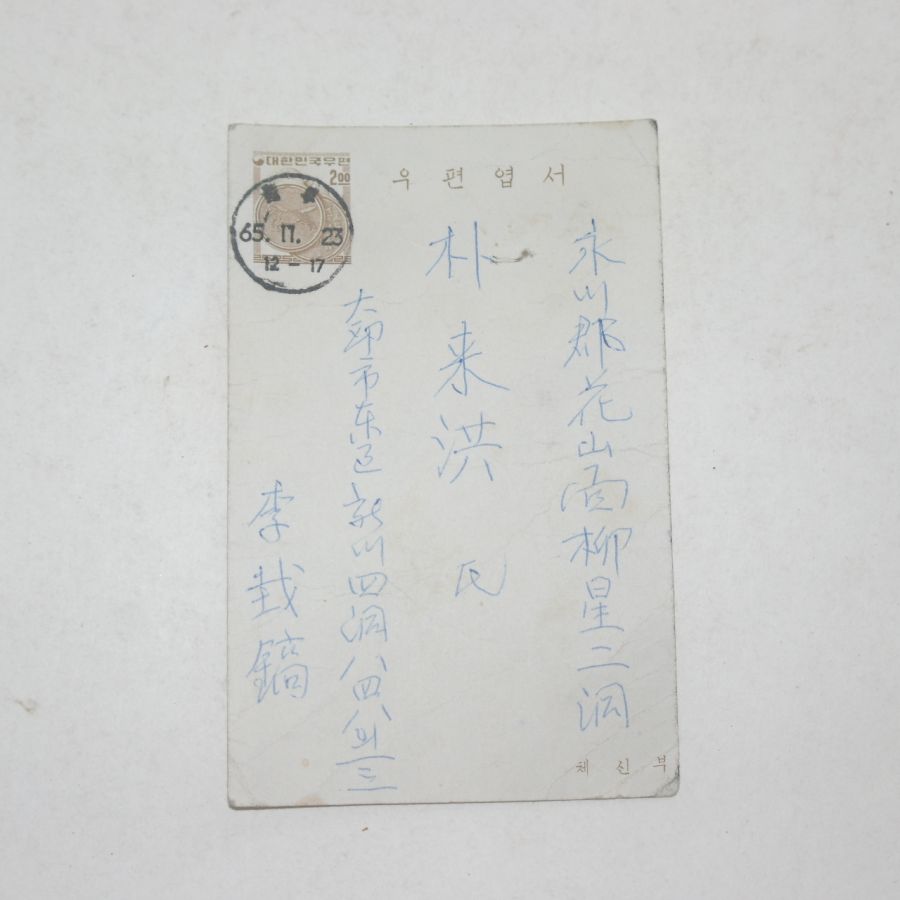 대한민국우편
2.00
우편엽서
65. 11. 23
12 - 17
永川郡花山面柳星二洞
朴来洪 氏
大邱市东区新川四洞八四八의三
李哉鎬
체신부